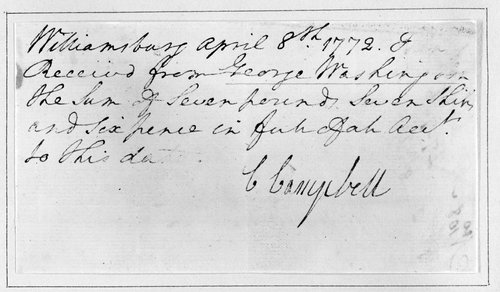 Williamsburg April 8th. 1772. &
Receivd from George Washington
the Sum of Seven pounds Seven Shin
and Six pence in full of all Acct.
to this date
C Campbell